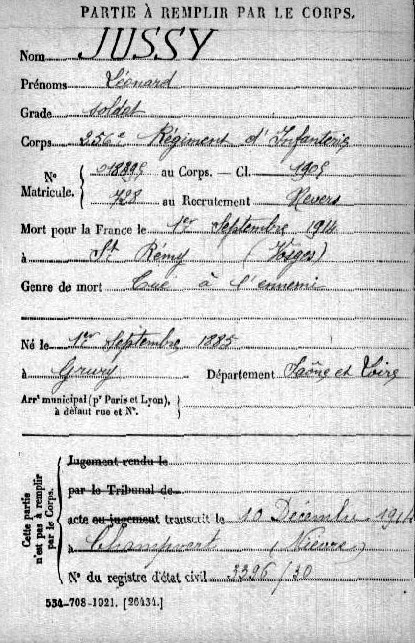 PARTIE À REMPLIR PAR LE CORPS.
Nom JUSSY
Prénoms Léonard
Grade soldat
Corps 256e Régiment d'Infanterie
N° Matricule. { 018395 au Corps. — Cl. 1905
728 au Recrutement Nevers
Mort pour la France le 1er Septembre 1914
à St Rémy (Vosges)
Genre de mort Tué à l'ennemi
Né le 1er Septembre 1885
à Grury Département Saône et Loire
Arrt municipal (pr Paris et Lyon),
à défaut rue et N°.
Cette partie n'est pas à remplir par le Corps.
Jugement rendu le
par le Tribunal de
acte ou jugement transcrit le 10 Décembre 1914
à Champvert (Nièvre)
N° du registre d'état civil 3396/30
534-708-1921. [26434.]